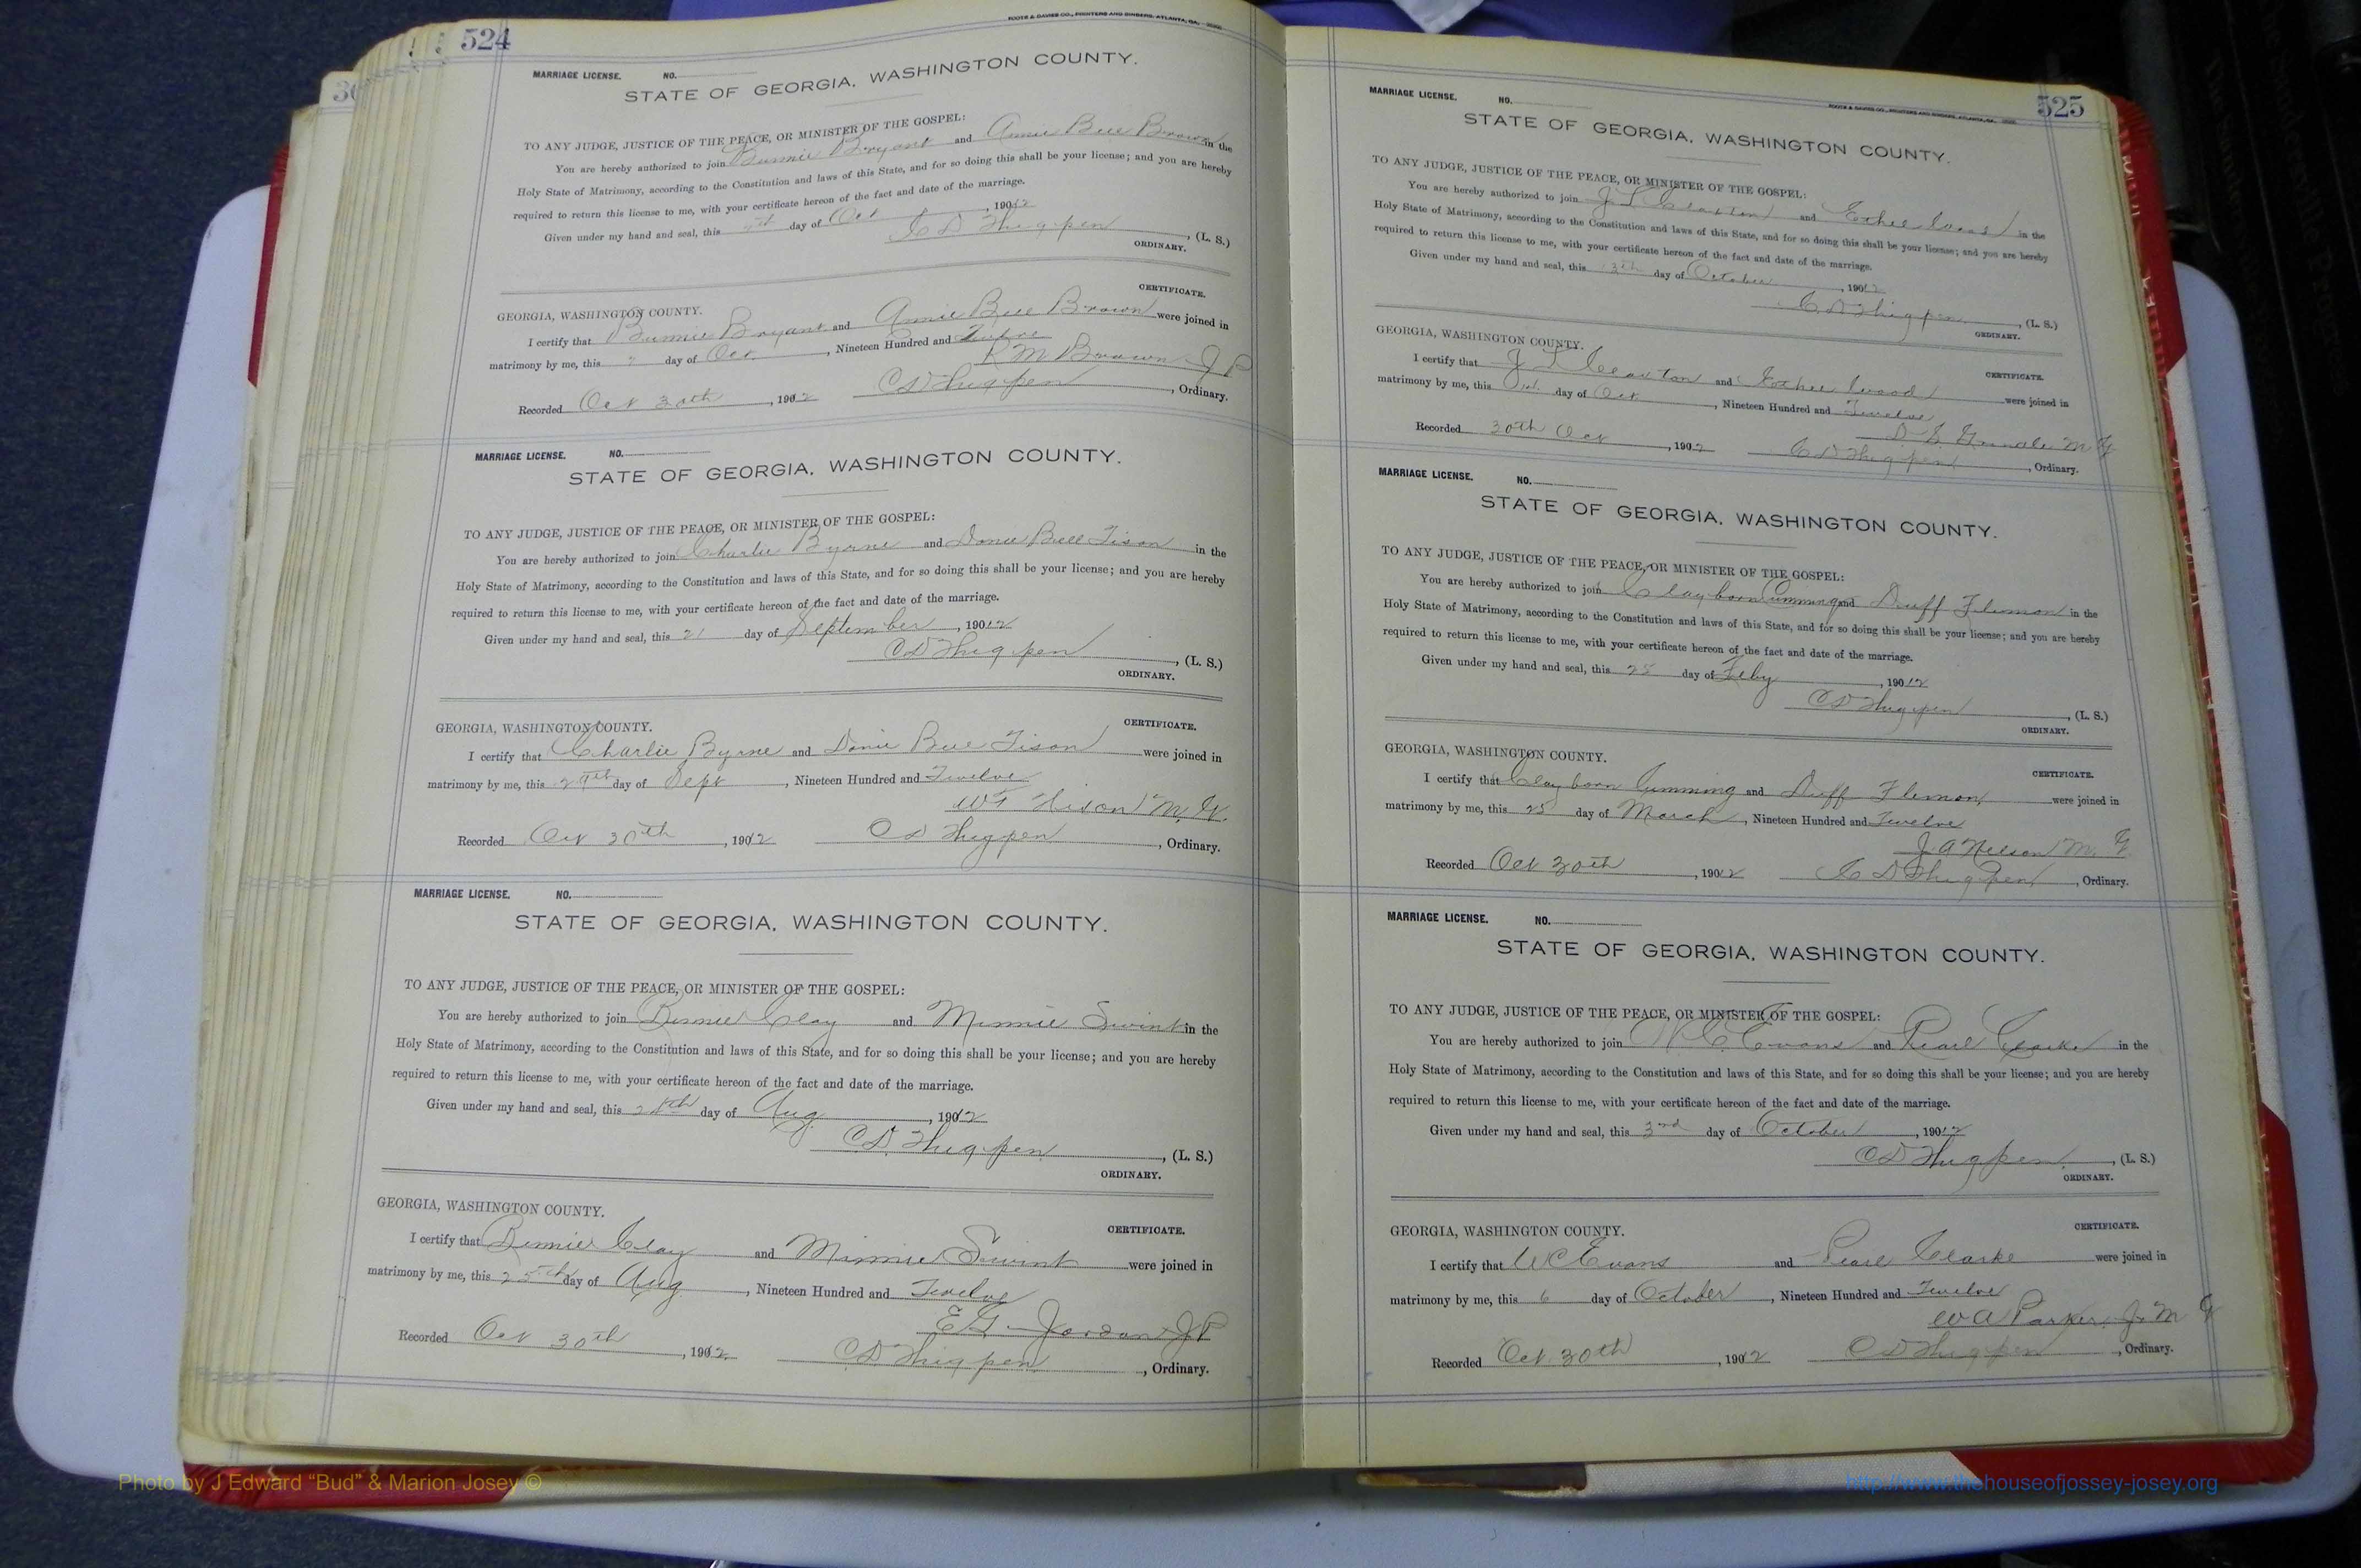 524
FOOTE & DAVIES CO., PRINTERS AND BINDERS, ATLANTA, GA.
MARRIAGE LICENSE. NO.
STATE OF GEORGIA, WASHINGTON COUNTY.
TO ANY JUDGE, JUSTICE OF THE PEACE, OR MINISTER OF THE GOSPEL:
You are hereby authorized to join Bunnie Bryant and Annie Bell Brown in the
Holy State of Matrimony, according to the Constitution and laws of this State, and for so doing this shall be your license; and you are hereby
required to return this license to me, with your certificate hereon of the fact and date of the marriage.
Given under my hand and seal, this day of Oct, 19012
C D Thigpen, (L. S.)
ORDINARY.
CERTIFICATE.
GEORGIA, WASHINGTON COUNTY.
I certify that Bunnie Bryant and Annie Bell Brown were joined in
matrimony by me, this day of Oct, Nineteen Hundred and Twelve
R M Brown J P
Recorded Oct 30th, 1912 C D Thigpen, Ordinary.
MARRIAGE LICENSE. NO.
STATE OF GEORGIA, WASHINGTON COUNTY.
TO ANY JUDGE, JUSTICE OF THE PEACE, OR MINISTER OF THE GOSPEL:
You are hereby authorized to join Charlie Byrne and Donie Bell Tison in the
Holy State of Matrimony, according to the Constitution and laws of this State, and for so doing this shall be your license; and you are hereby
required to return this license to me, with your certificate hereon of the fact and date of the marriage.
Given under my hand and seal, this 21 day of September, 19012
C D Thigpen, (L. S.)
ORDINARY.
CERTIFICATE.
GEORGIA, WASHINGTON COUNTY.
I certify that Charlie Byrne and Donie Bell Tison were joined in
matrimony by me, this 29th day of Sept, Nineteen Hundred and Twelve
W T Hixon M. G.
Recorded Oct 30th, 1912 C D Thigpen, Ordinary.
MARRIAGE LICENSE. NO.
STATE OF GEORGIA, WASHINGTON COUNTY.
TO ANY JUDGE, JUSTICE OF THE PEACE, OR MINISTER OF THE GOSPEL:
You are hereby authorized to join Bennie Clay and Minnie Swint in the
Holy State of Matrimony, according to the Constitution and laws of this State, and for so doing this shall be your license; and you are hereby
required to return this license to me, with your certificate hereon of the fact and date of the marriage.
Given under my hand and seal, this day of Aug, 1912
C D. Thigpen, (L. S.)
ORDINARY.
GEORGIA, WASHINGTON COUNTY.
CERTIFICATE.
I certify that Bennie Clay and Minnie Swint were joined in
matrimony by me, this 25th day of Aug, Nineteen Hundred and Twelve
E G Jordan J P
Recorded Oct 30th, 1912. C D Thigpen, Ordinary.
525
FOOTE & DAVIES CO., PRINTERS AND BINDERS, ATLANTA, GA.
MARRIAGE LICENSE. NO.
STATE OF GEORGIA, WASHINGTON COUNTY.
TO ANY JUDGE, JUSTICE OF THE PEACE, OR MINISTER OF THE GOSPEL:
You are hereby authorized to join J L Claxton and Esther in the
Holy State of Matrimony, according to the Constitution and laws of this State, and for so doing this shall be your license; and you are hereby
required to return this license to me, with your certificate hereon of the fact and date of the marriage.
Given under my hand and seal, this day of October, 19012
C. D Thigpen, (L. S.)
ORDINARY.
GEORGIA, WASHINGTON COUNTY.
CERTIFICATE.
I certify that J L Claxton and were joined in
matrimony by me, this day of Oct, Nineteen Hundred and Twelve
M G
Recorded 30th Oct, 1902 C D Thigpen, Ordinary.
MARRIAGE LICENSE. NO.
STATE OF GEORGIA, WASHINGTON COUNTY.
TO ANY JUDGE, JUSTICE OF THE PEACE, OR MINISTER OF THE GOSPEL:
You are hereby authorized to join Clayborn Cumming and Duff Flemon in the
Holy State of Matrimony, according to the Constitution and laws of this State, and for so doing this shall be your license; and you are hereby
required to return this license to me, with your certificate hereon of the fact and date of the marriage.
Given under my hand and seal, this day of Feby, 19012
C D Thigpen, (L. S.)
ORDINARY.
GEORGIA, WASHINGTON COUNTY.
CERTIFICATE.
I certify that Clayborn Cumming and Duff Flemon were joined in
matrimony by me, this 25 day of March, Nineteen Hundred and Twelve
J. A Nelson M. G
Recorded Oct 30th, 19012 C D Thigpen, Ordinary.
MARRIAGE LICENSE. NO.
STATE OF GEORGIA, WASHINGTON COUNTY.
TO ANY JUDGE, JUSTICE OF THE PEACE, OR MINISTER OF THE GOSPEL:
You are hereby authorized to join W C Evans and Pearl Clarke in the
Holy State of Matrimony, according to the Constitution and laws of this State, and for so doing this shall be your license; and you are hereby
required to return this license to me, with your certificate hereon of the fact and date of the marriage.
Given under my hand and seal, this 3rd day of October, 19012
C D Thigpen, (L. S.)
ORDINARY.
GEORGIA, WASHINGTON COUNTY.
CERTIFICATE.
I certify that W C Evans and Pearl Clarke were joined in
matrimony by me, this 6 day of October, Nineteen Hundred and Twelve
W A Parker, J. M G
Recorded Oct 30th, 1912 C D Thigpen, Ordinary.
Photo by J Edward “Bud” & Marion Josey ©
http://www.thehouseofjossey-josey.org